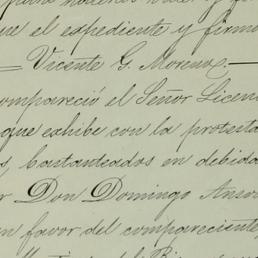 ue el expediente y firmo
= Vicente G. Moreno. =
compareció el Señor Licen
que exhibe con la protesta
s, bastanteados en debida
r Don Domingo Ansoa
n favor del compareciente